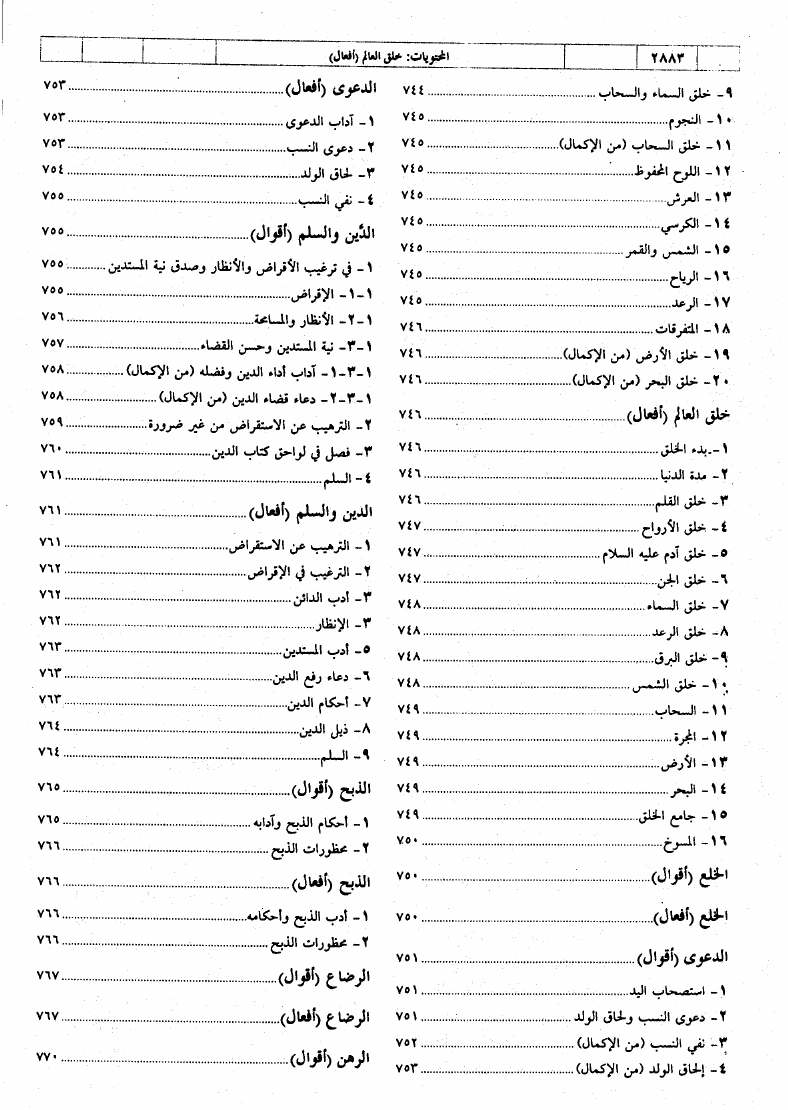 ٢٨٨٣
المحتويات: خلق العالم (أفعال)
٩- خلق السماء والسحاب ........ ٧٤٤
١٠- النجوم ........ ٧٤٥
١١- خلق السحاب (من الإكمال) ........ ٧٤٥
١٢- اللوح المحفوظ ........ ٧٤٥
١٣- العرش ........ ٧٤٥
١٤- الكرسي ........ ٧٤٥
١٥- الشمس والقمر ........ ٧٤٥
١٦- الرياح ........ ٧٤٥
١٧- الرعد ........ ٧٤٥
١٨- المتفرقات ........ ٧٤٦
١٩- خلق الأرض (من الإكمال) ........ ٧٤٦
٢٠- خلق البحر (من الإكمال) ........ ٧٤٦
خلق العالم (أفعال) ........ ٧٤٦
١- بدء الخلق ........ ٧٤٦
٢- مدة الدنيا ........ ٧٤٦
٣- خلق القلم ........ ٧٤٦
٤- خلق الأرواح ........ ٧٤٧
٥- خلق آدم عليه السلام ........ ٧٤٧
٦- خلق الجن ........ ٧٤٧
٧- خلق السماء ........ ٧٤٨
٨- خلق الرعد ........ ٧٤٨
٩- خلق البرق ........ ٧٤٨
١٠- خلق الشمس ........ ٧٤٨
١١- السحاب ........ ٧٤٩
١٢- المجرة ........ ٧٤٩
١٣- الأرض ........ ٧٤٩
١٤- البحر ........ ٧٤٩
١٥- جامع الخلق ........ ٧٤٩
١٦- المسوخ ........ ٧٥٠
الخلع (أقوال) ........ ٧٥٠
الخلع (أفعال) ........ ٧٥٠
الدعوى (أقوال) ........ ٧٥١
١- استصحاب اليد ........ ٧٥١
٢- دعوى النسب ولحاق الولد ........ ٧٥١
٣- نفي النسب (من الإكمال) ........ ٧٥٢
٤- إلحاق الولد (من الإكمال) ........ ٧٥٣
الدعوى (أفعال) ........ ٧٥٣
١- آداب الدعوى ........ ٧٥٣
٢- دعوى النسب ........ ٧٥٣
٣- لحاق الولد ........ ٧٥٤
٤- نفي النسب ........ ٧٥٥
الدَّين والسلم (أقوال) ........ ٧٥٥
١- في ترغيب الأقراض والأنظار وصدق نية المستدين ........ ٧٥٥
١-١- الإقراض ........ ٧٥٥
١-٢- الأنظار والمسامحة ........ ٧٥٦
١-٣- نية المستدين وحسن القضاء ........ ٧٥٧
١-٣-١- آداب أداء الدين وفضله (من الإكمال) ........ ٧٥٨
١-٣-٢- دعاء قضاء الدين (من الإكمال) ........ ٧٥٨
٢- الترهيب عن الاستقراض من غير ضرورة ........ ٧٥٩
٣- فصل في لواحق كتاب الدين ........ ٧٦٠
٤- السلم ........ ٧٦١
الدين والسلم (أفعال) ........ ٧٦١
١- الترهيب عن الاستقراض ........ ٧٦١
٢- الترغيب في الإقراض ........ ٧٦٢
٣- أدب الدائن ........ ٧٦٢
٣- الإنظار ........ ٧٦٢
٥- أدب المستدين ........ ٧٦٣
٦- دعاء رفع الدين ........ ٧٦٣
٧- أحكام الدين ........ ٧٦٣
٨- ذيل الدين ........ ٧٦٤
٩- السلم ........ ٧٦٤
الذبح (أقوال) ........ ٧٦٥
١- أحكام الذبح وآدابه ........ ٧٦٥
٢- محظورات الذبح ........ ٧٦٦
الذبح (أفعال) ........ ٧٦٦
١- أدب الذبح وأحكامه ........ ٧٦٦
٢- محظورات الذبح ........ ٧٦٦
الرضاع (أقوال) ........ ٧٦٧
الرضاع (أفعال) ........ ٧٦٧
الرهن (أقوال) ........ ٧٧٠